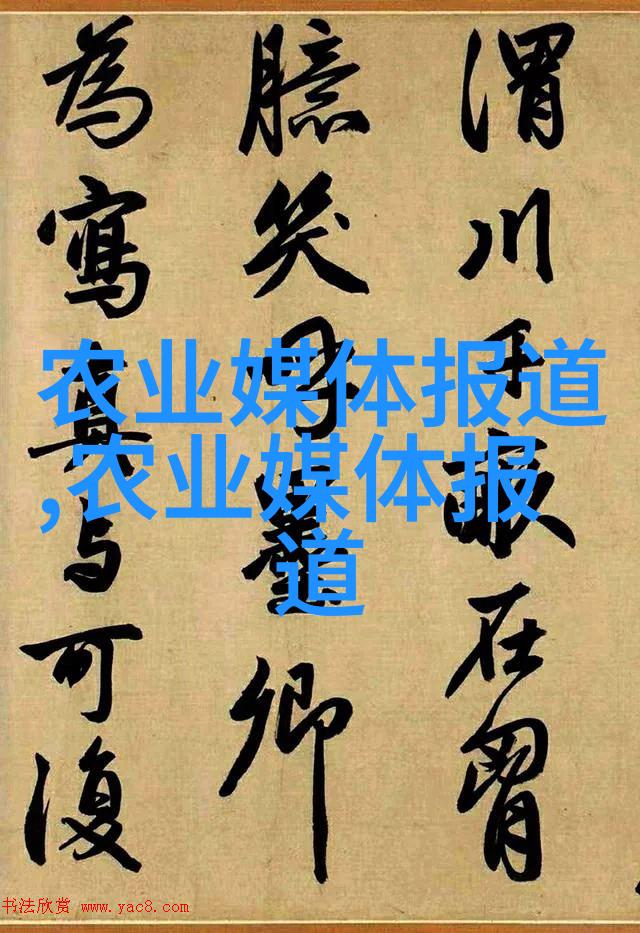 渭川千畝在胷
臆笑呼墨卿
為寫真与可復
农业媒体报道
,农业媒体报
道
书法欣赏 www.yac8.com